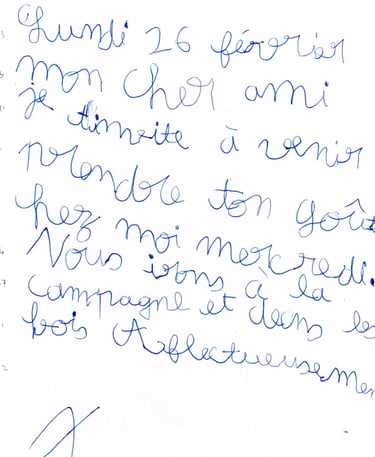 Lundi 26 févriar
mon cher ami
je t'invite à venir
prendre ton goût
hez moi mercredi.
Nous irons à la
campagne et dans les
bois Afflectueusemen